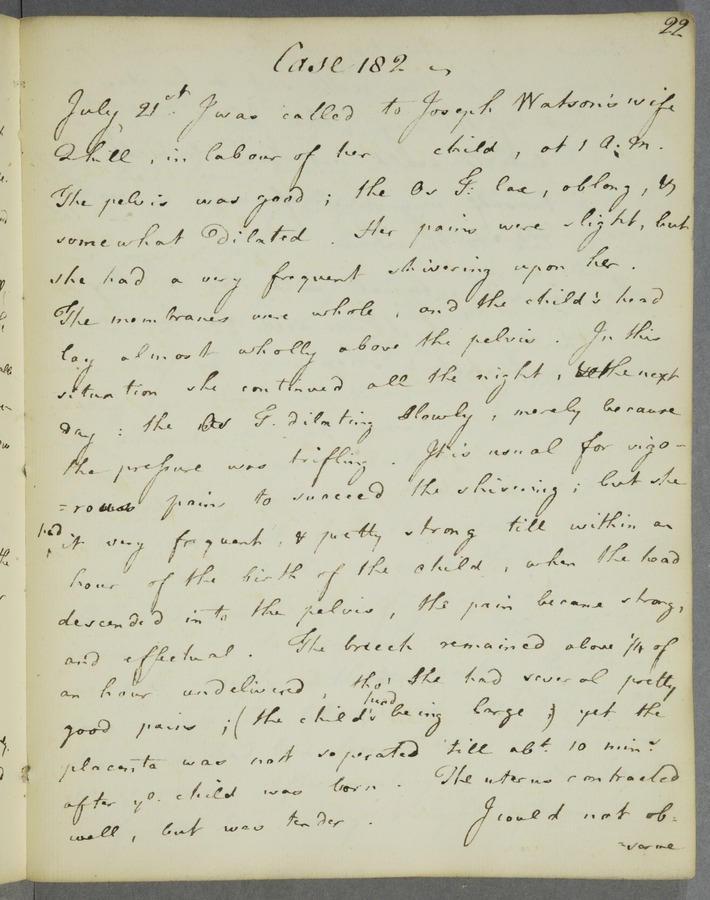 22
Case 182
July 21st. I was called to Joseph Watson's wife
, in labour of her child, at 1 A.M.
The pelvis was good; the Os G: lax, oblong, &
somewhat dilated. Her pains were slight, but
she had a very frequent shivering upon her.
The membranes were whole, and the child's head
lay almost wholly above the pelvis. In this
situation she continued all the night, the next
day: the Os G. dilating slowly, merely because
the pressure was trifling. It is usual for vigo-
=rous pains to succeed the shivering; but she
had it very frequent, & pretty strong till within an
hour of the birth of the child, when the head
descended into the pelvis, the pain became strong,
and effectual. The breech remained above 1/4 of
an hour undelivered, tho' she had several pretty
good pains; (the child's head being large;) yet the
placenta was not seperated till abt. 10 mins.
after ye. child was born. The uterus contracted
well, but was tender. I could not ob-
=serve